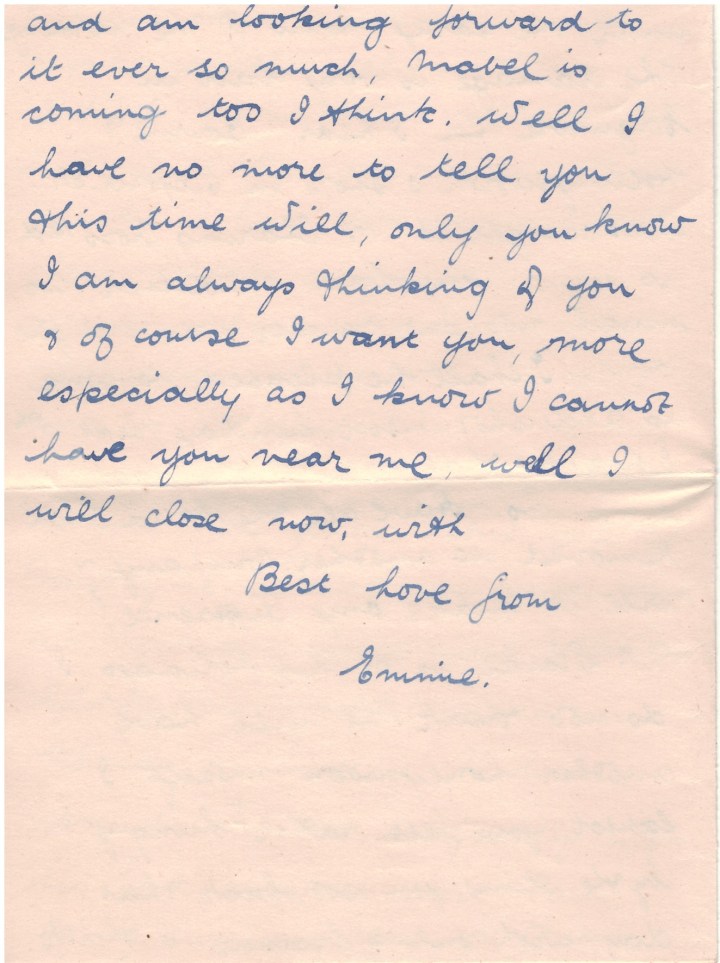 and am looking forward to
it ever so much, Mabel is
coming too I think. Well I
have no more to tell you
this time Will, only you know
I am always thinking of you
& of course I want you, more
especially as I know I cannot
have you near me, well I
will close now, with
Best Love from
Emmie.